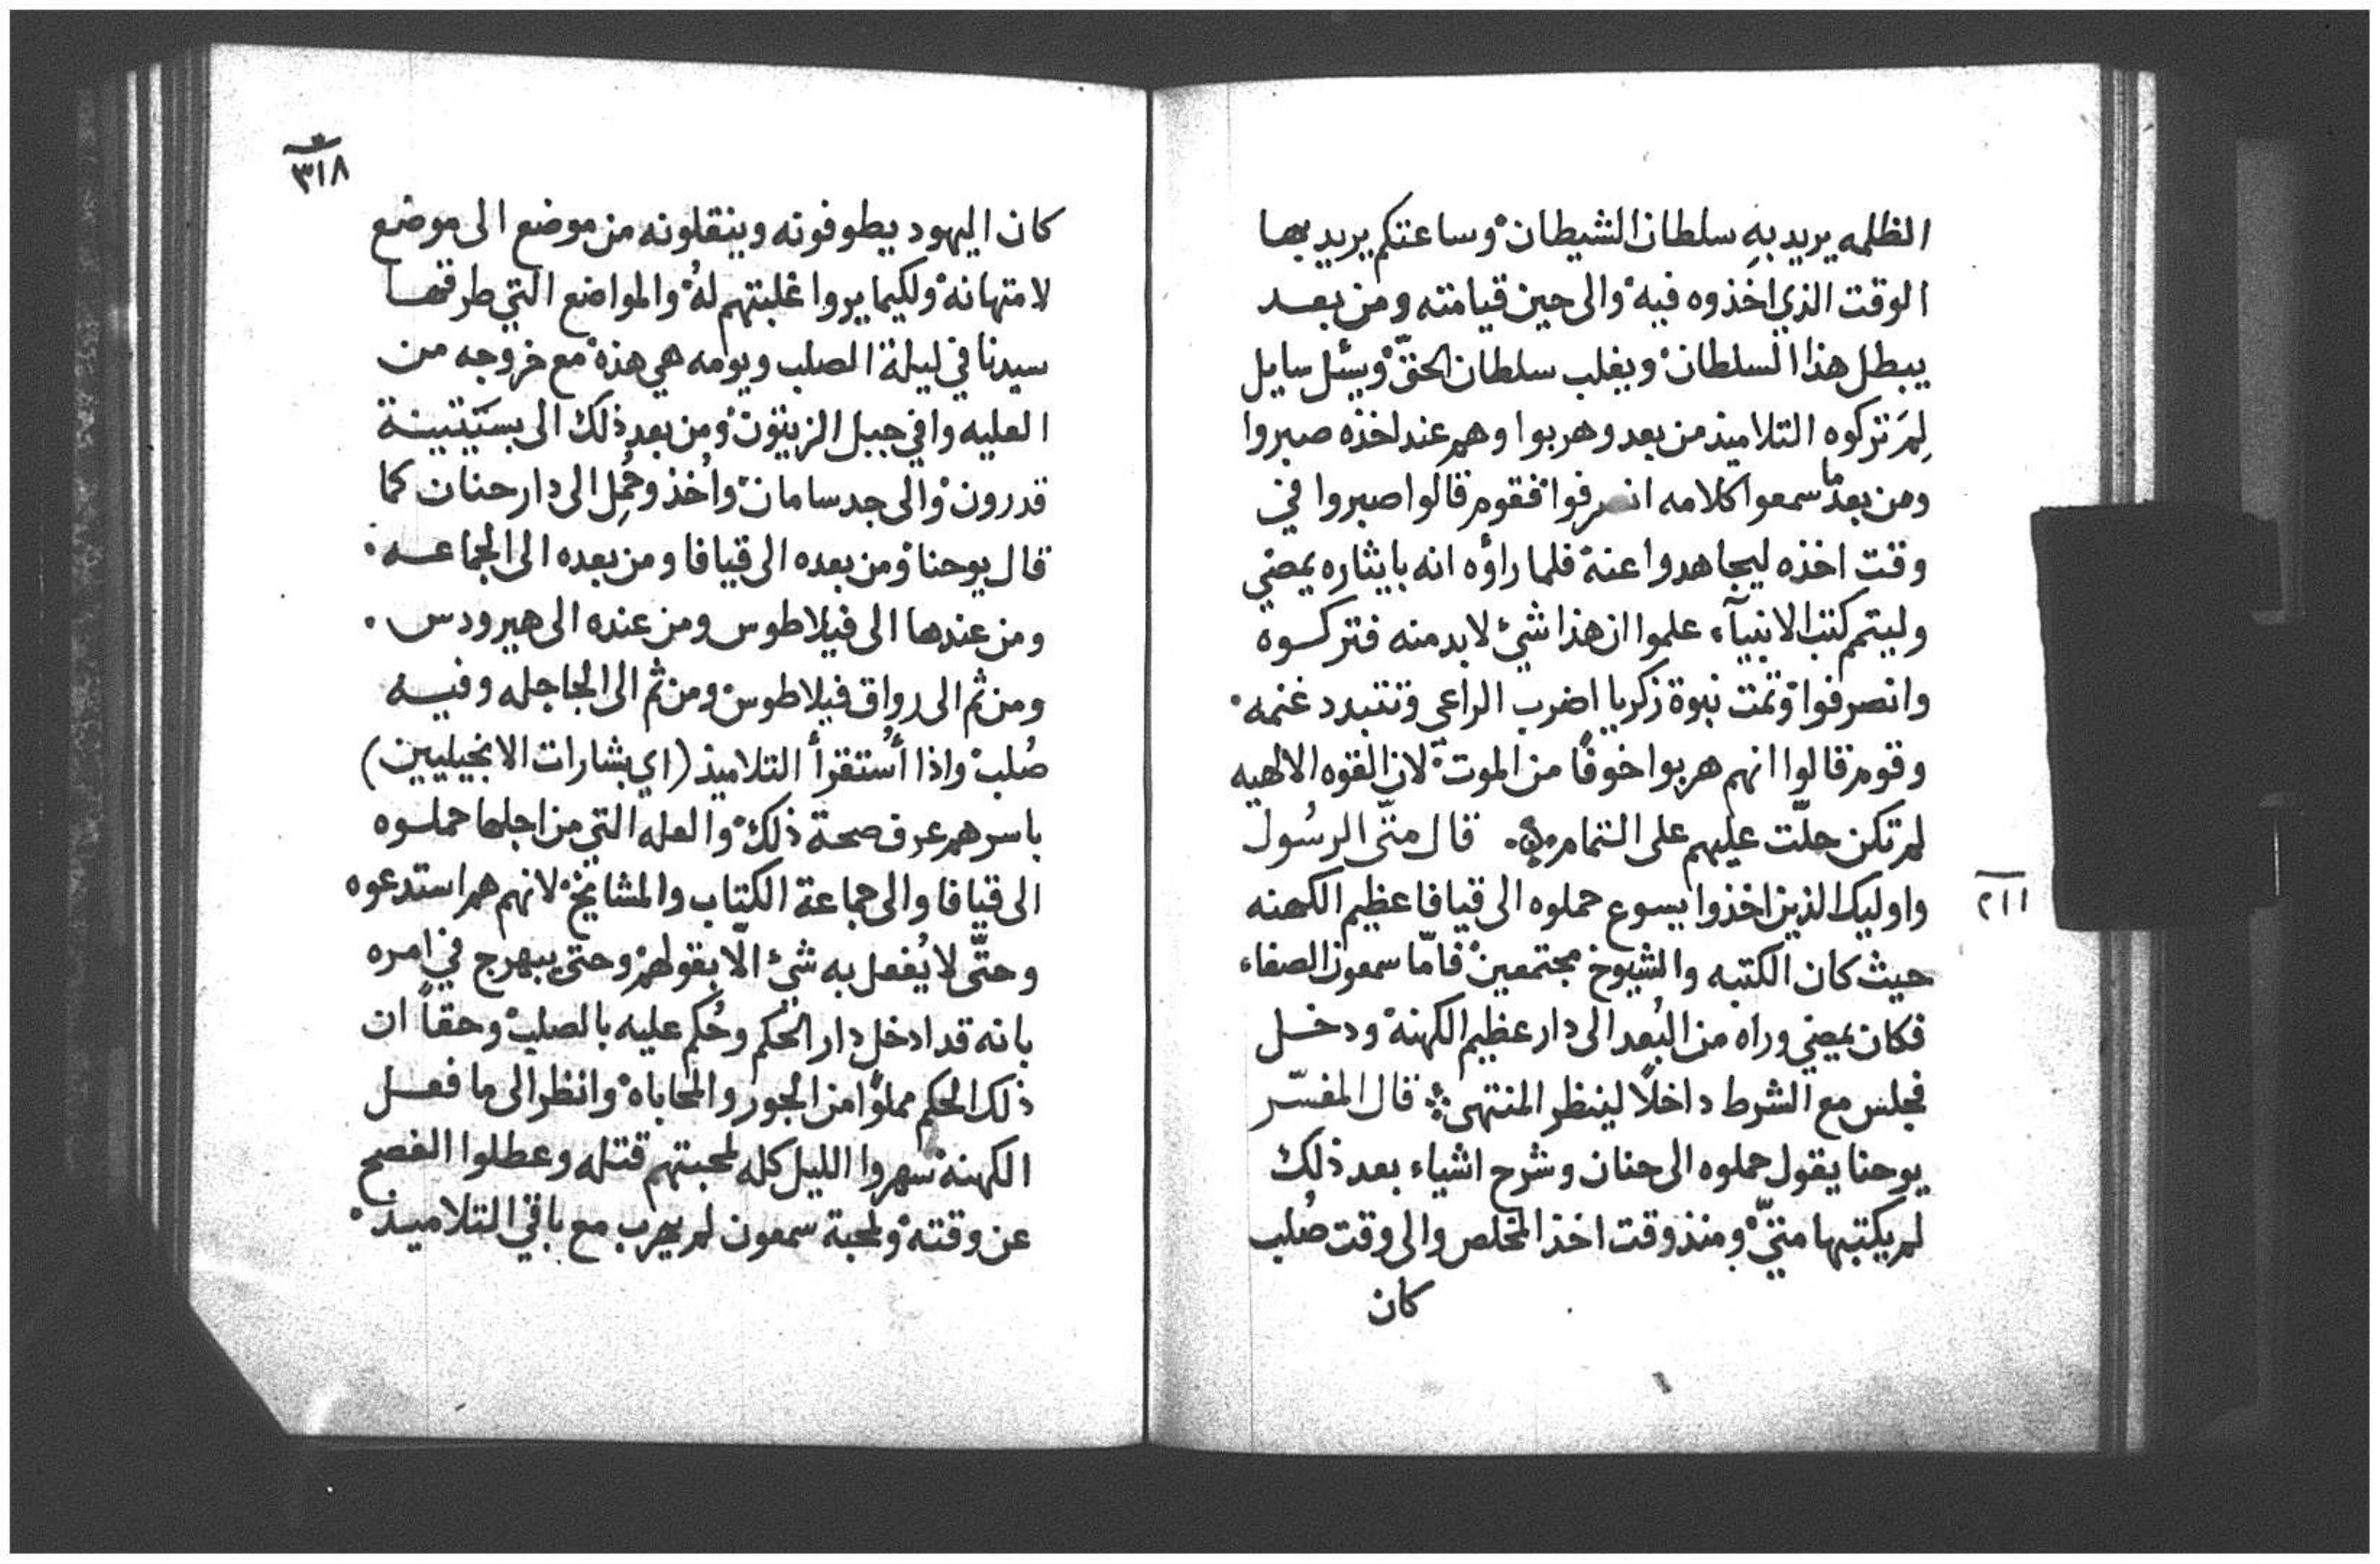 الظلمه يريد بهِ سلطان الشيطان ْ وساعتكم يريد بها
الوقت الذي اخذوه فيه ْ والى حين قيامته ومن بعد
يبطل هذا السلطان ْ ويغلب سلطان الحقّ ْ ويسئل سايل
لِمَ تركوه التلاميذ من بعد وهربوا وهم عند اخذه صبروا
ومن بعد ما سمعوا كلامه انصرفوا ْ فقوم قالوا صبروا في
وقت اخذه ليجاهدوا عنه ْ فلما راؤه انه بايثاره يمضي
وليتم كتب الانبيآء علموا ان هذا شئ لابد منه فتركوه
وانصرفوا ْ وتمت نبوة زكريا اضرب الراعي وتتبدد غنمه ْ
وقوم قالوا انهم هربوا خوفًا من الموت ْ لان القوه الالهيه
لم تكن حلّت عليهم على التمام ۰ قال متّى الرسُول
واوليك الذين اخذوا يسوع حملوه الى قيافا عظيم الكهنه
٢١١
حيث كان الكتبه والشيوخ مجتمعين ْ فامّا سمعون الصفاء
فكان يمضي وراه من البُعد الى دار عظيم الكهنة ْ ودخل
فجلس مع الشرط داخلًا لينظر المنتهى ۞ قال المفسّر
يوحنا يقول حملوه الى حنان وشرح اشياء بعد ذلك
لم يكتبها متّي ْ ومنذ وقت اخذ المخلص والى وقت صُلب
كان
٣١٨
كان اليهود يطوفونه وينقلونه من موضع الى موضع
لامتهانه ْ ولكيما يروا غلبتهم لهُ ْ والمواضع التي طرقها
سيدنا في ليلة الصلب ويومه هي هذة ْ مع خروجه من
العليه وافي جبل الزيتون ْ ومن بعد ذلك الى
قدرون ْ والى جدسامان ْ واُخذ وحُمِل الى دار حنان كما
قال يوحنا ْ ومن بعده الى قيافا ومن بعده الى الجماعه ۰
ومن عندها الى فيلاطوس ومن عنده الى هيرودس ۰
ومن ثم الى رواق فيلاطوس ْ ومن ثم الى الجاجله وفيه
صُلب ْ واذا أُستقرأ التلاميذ (اي بشارات الانجيليين)
باسرهم عرف صحة ذلك ْ والعله التي من اجلها حملوه
الى قيافا والى جماعة الكتاب والمشايخ ْ لانهم هم استدعوه
وحتّى لا يُفعل به شئ الّا بقولهم ْ وحتى يبهرج في امره
بانه قد ادخل دار الحُكم وحُكم عليه بالصلب ْ وحقاً ان
ذلك الحكم مملوًا من الجور والمحاباه ْ وانظر الى ما فعل
الكهنة ْ سهروا الليل كله لمحبتهم قتله وعطلوا الفصح
عن وقته ْ ولمحبة سمعون لم يهرب مع باقي التلاميذ ْ